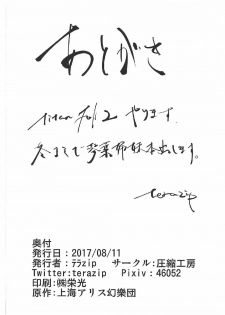 あとがき
やります。
冬コミで琴葉姉妹本出します。
terazip
奥付
発行日：2017/08/11
発行者：ﾃﾗzip　サークル：圧縮工房
Twitter:terazip　Pixiv：46052
印刷：㈱栄光
原作：上海アリス幻樂団